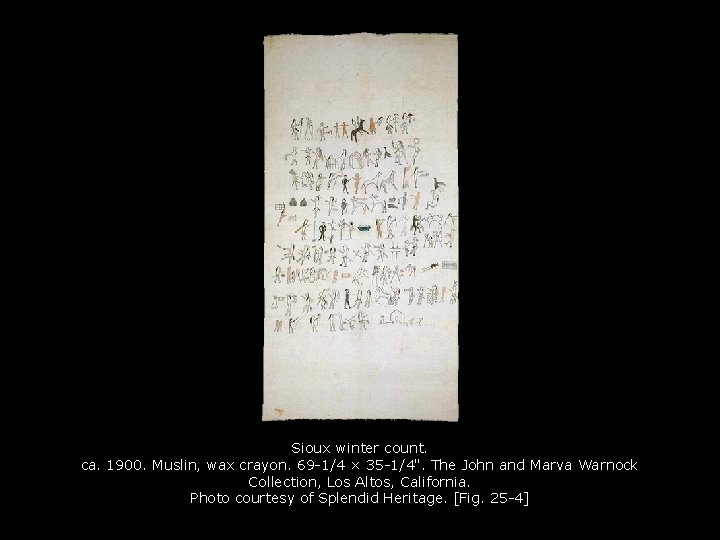 Sioux winter count.
ca. 1900. Muslin, wax crayon. 69-1/4 × 35-1/4". The John and Marva Warnock
Collection, Los Altos, California.
Photo courtesy of Splendid Heritage. [Fig. 25-4]